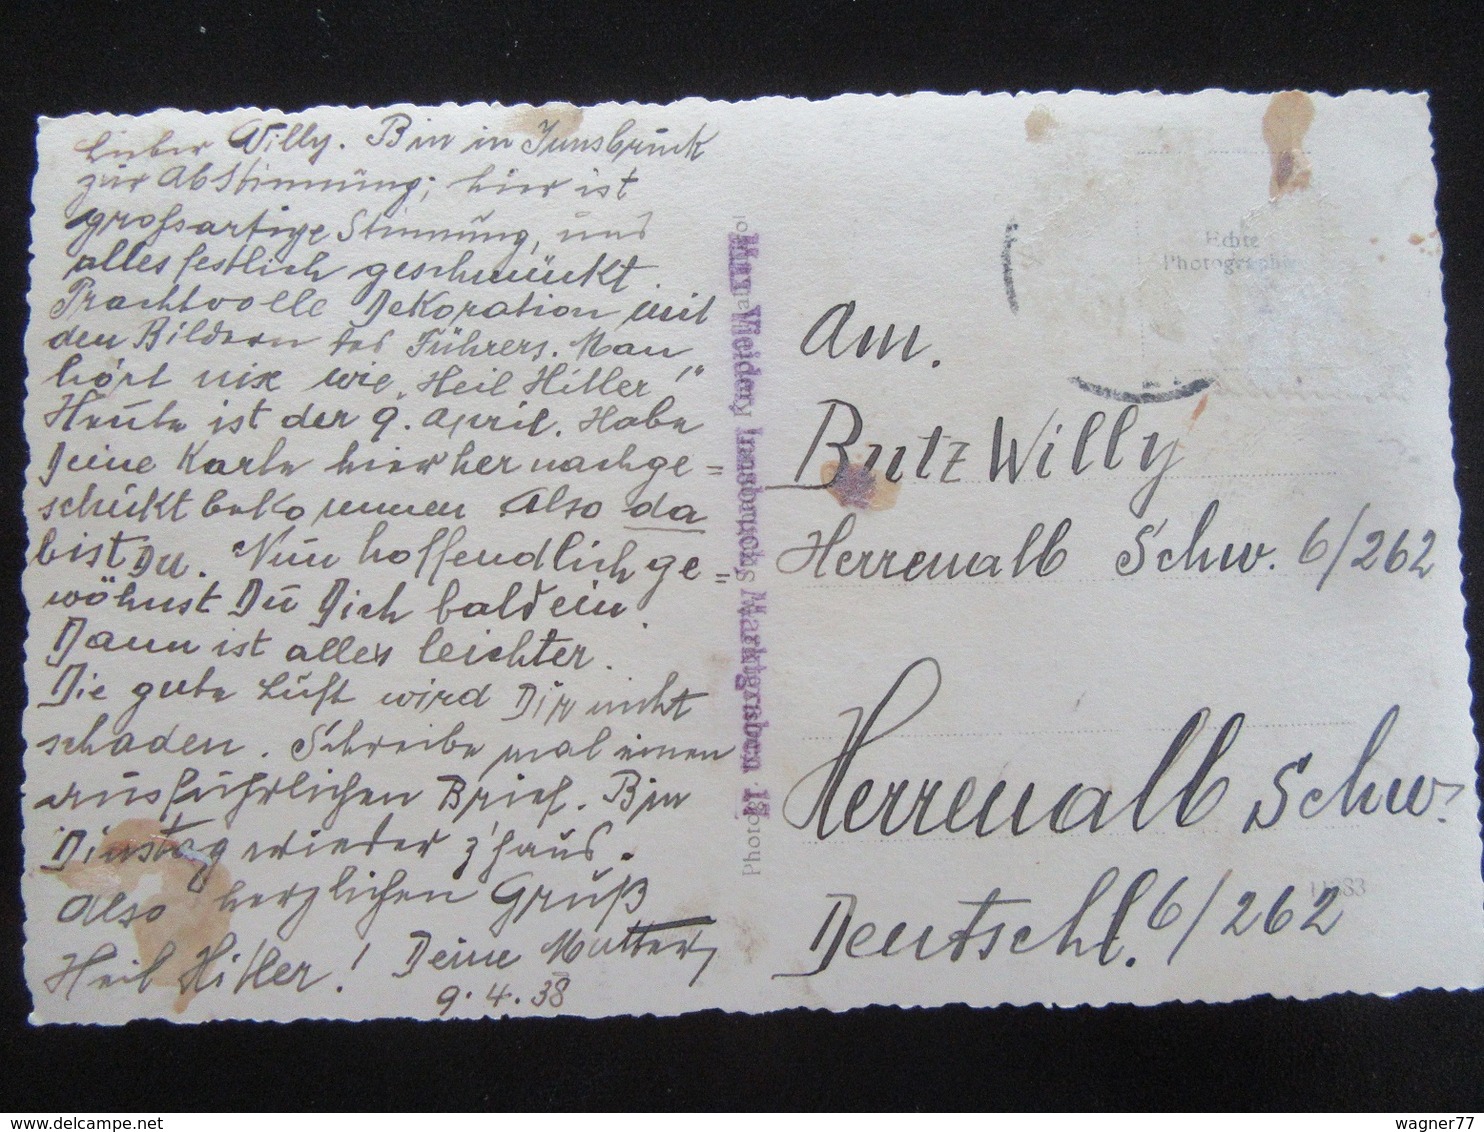 Lieber Willy. Bin in Innsbruck
zur Abstimmung; hier ist
großartige Stimmung, und
alles festlich geschmückt.
Prachtvolle Dekoration mit
den Bildern des Führers. Man
hört nix wie „Heil Hitler!"
Heute ist der 9. April. Habe
Deine Karte hierher nachge=
schickt bekommen. Also da
bist Du. Nun hoffendlich ge=
wöhnst Du Dich bald ein.
Dann ist alles leichter.
Die gute Luft wird Dir nicht
schaden. Schreibe mal einen
ausführlichen Brief. Bin
Dinstag wieder z'haus.
Also herzlichen Gruß
Heil Hitler! Deine Mutter,
9.4.38
Innsbruck Marktgraben
Photo
Echte
Photographie
Am.
Butz Willy
Herrenalb Schw. 6/262
Herrenalb Schw.
Deutschl. 6/262
wagner77